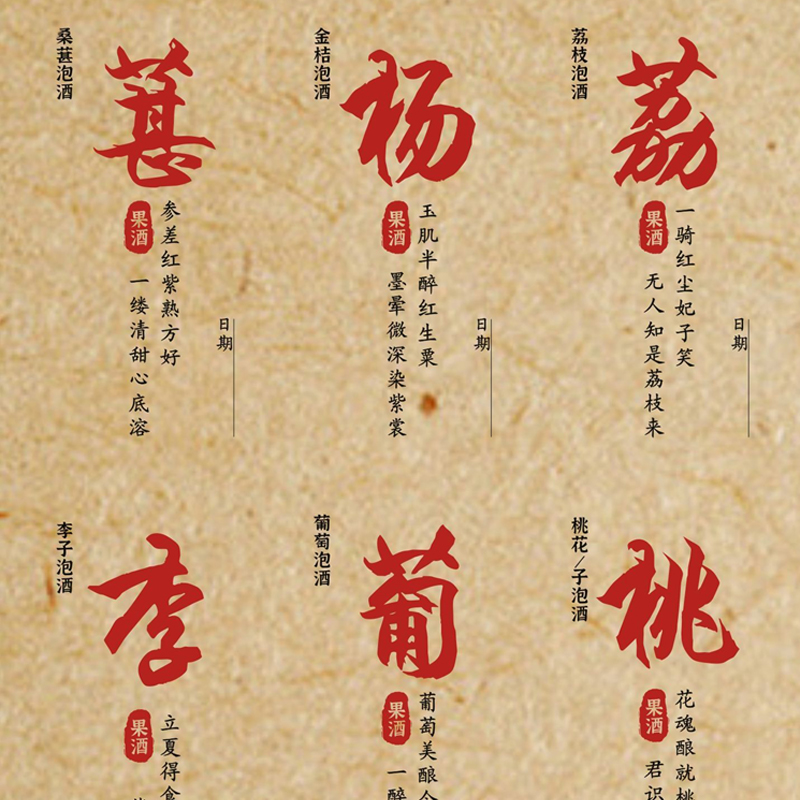 桑葚泡酒
葚
参差红紫熟方好
果酒
一缕清甜心底溶
日期
金桔泡酒
杨
玉肌半醉红生粟
果酒
墨晕微深染紫裳
日期
荔枝泡酒
荔
一骑红尘妃子笑
果酒
无人知是荔枝来
日期
李子泡酒
李
立夏得食
果酒
葡萄泡酒
葡
葡萄美酿今
果酒
一醉
桃花/子泡酒
桃
花魂酿就桃
果酒
君识